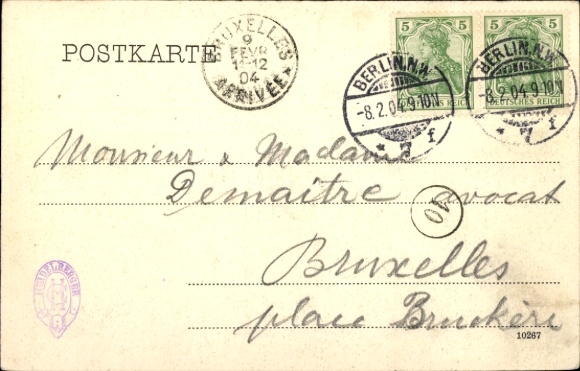 POSTKARTE
BRUXELLES
9
FEVR
11-12
04
ARRIVÉE
5 5
BERLIN.N.W.
-8.2.04.9-10N
* 7 f
BERLIN.N.W.
-8.2.04.9-10N
* 7 f
DEUTSCHES REICH
Monsieur & Madame
Demaitre avocat
40
Bruxelles
place Bruckère
10267